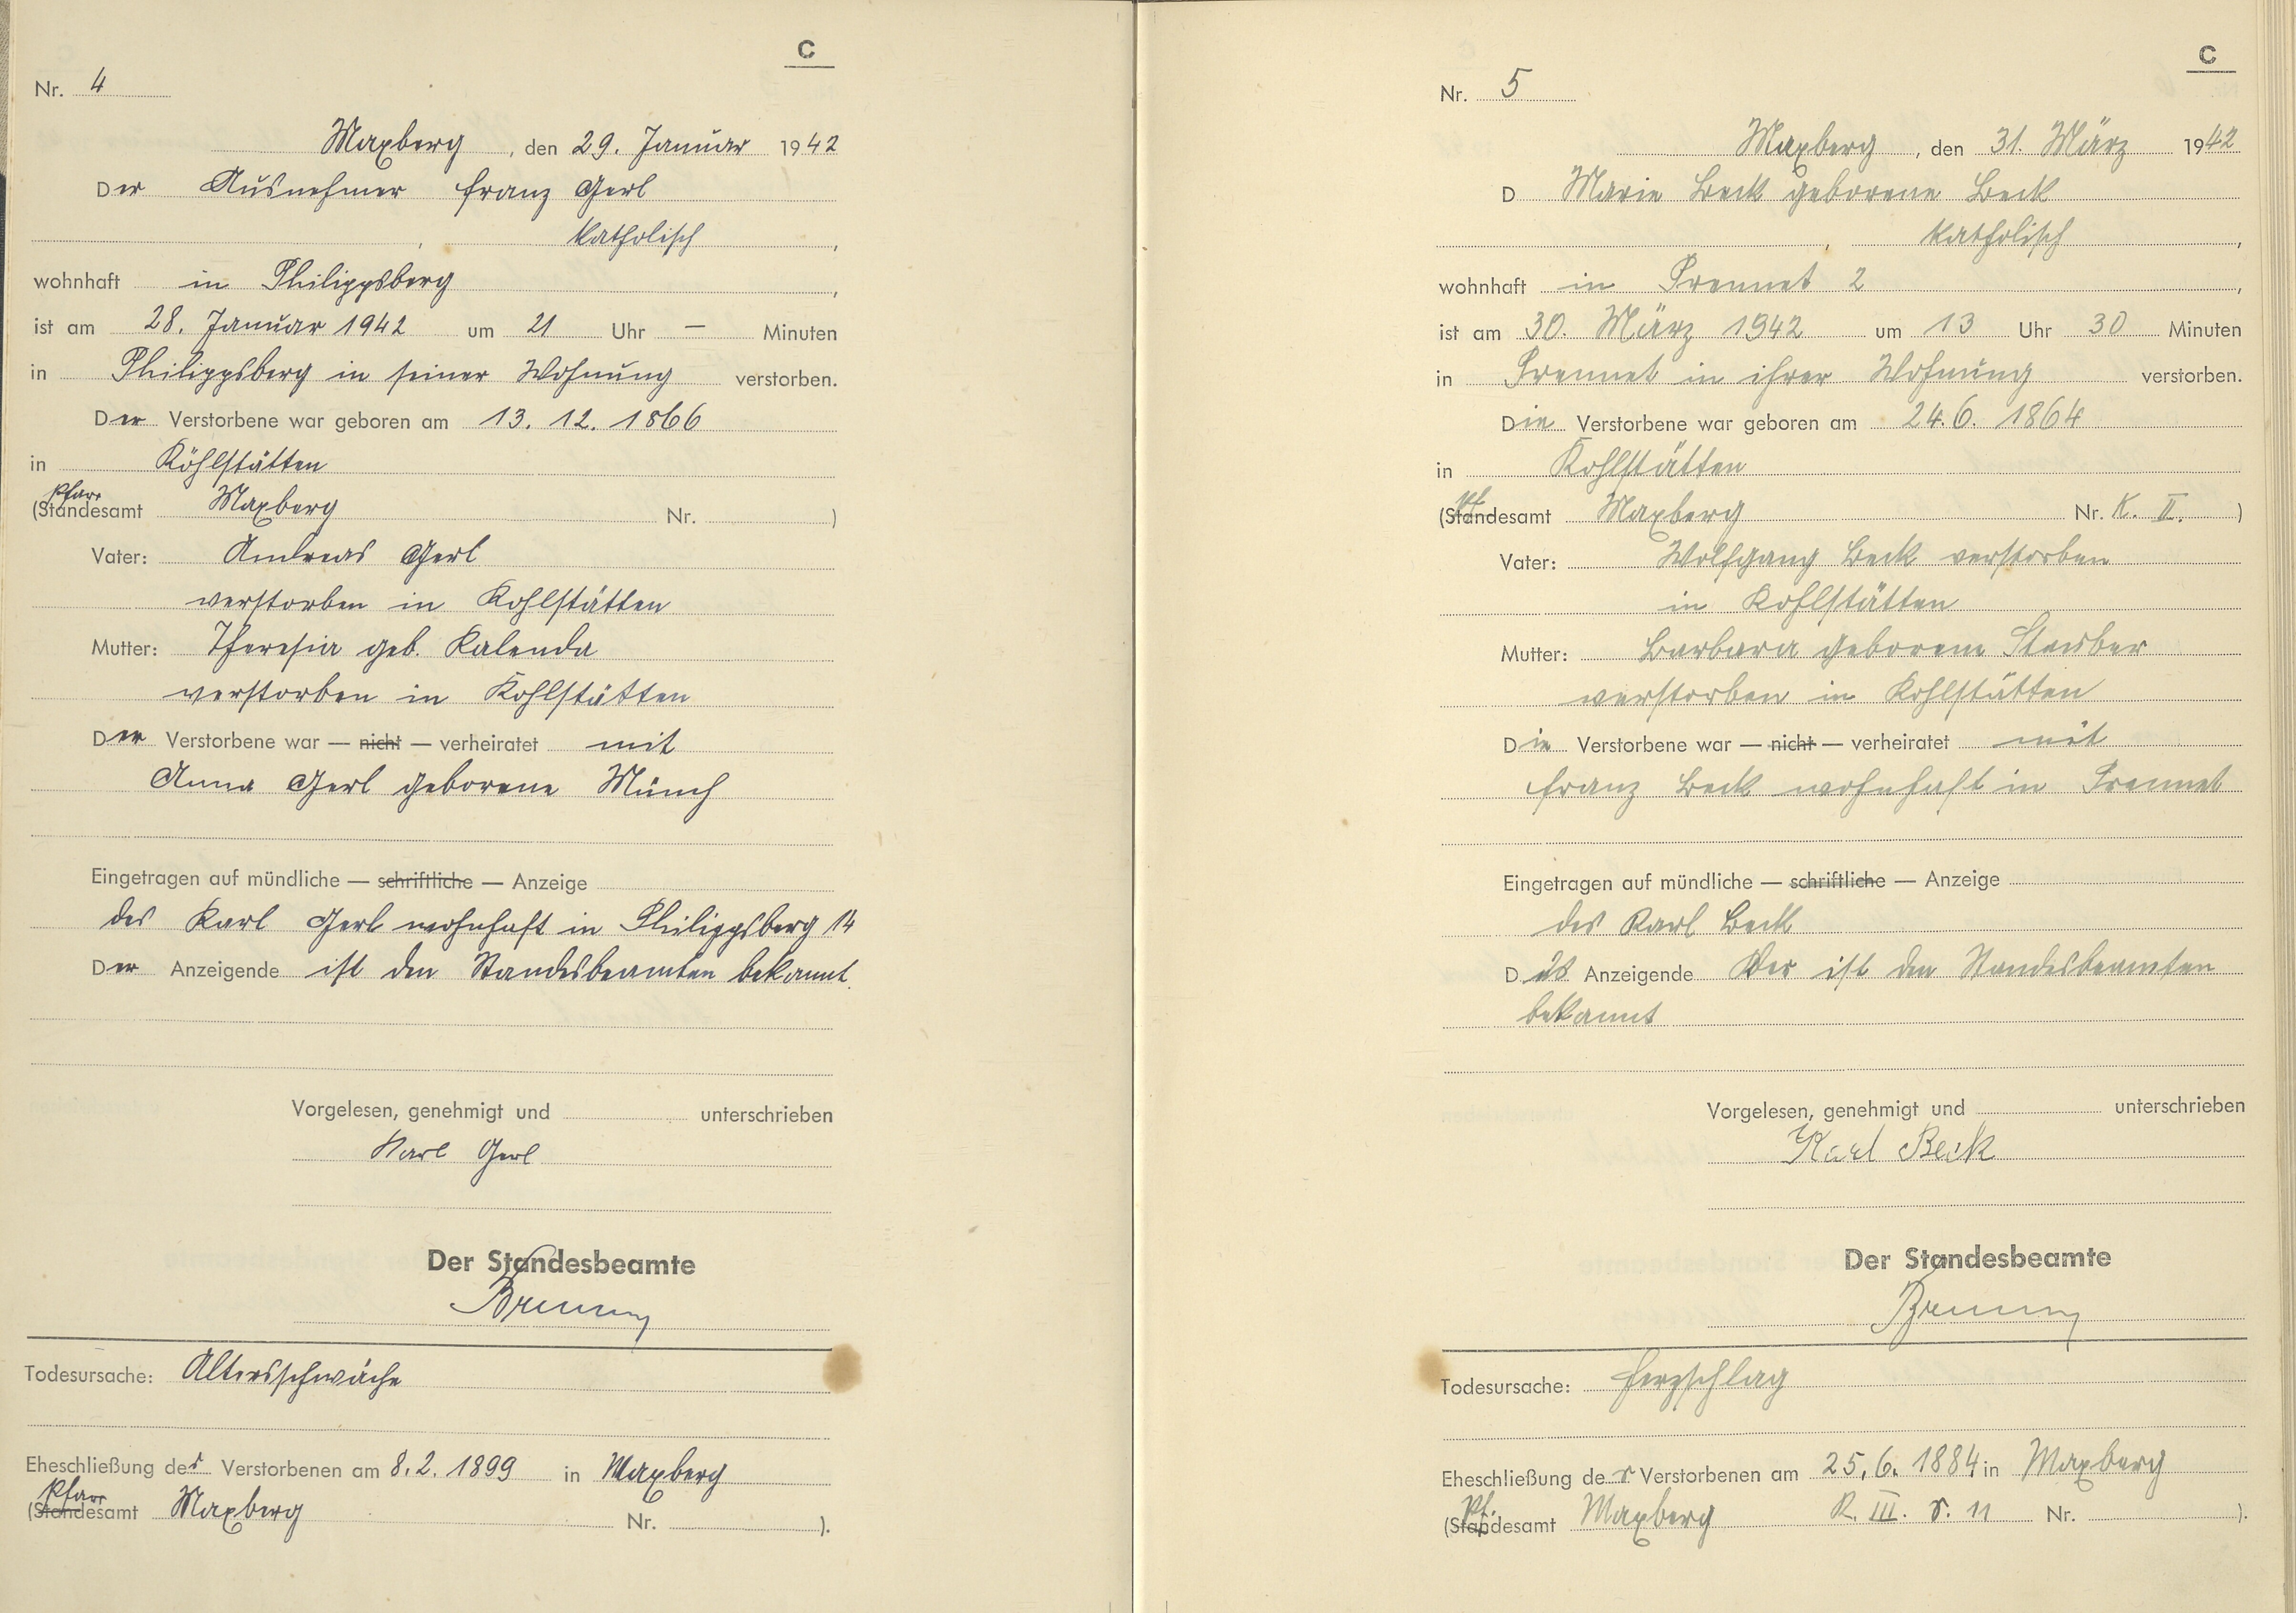 C
Nr. 4
Maxberg, den 29. Januar 1942
Der Ausnehmer Franz Gerl
katholisch,
wohnhaft in Philippsberg,
ist am 28. Januar 1942 um 21 Uhr — Minuten
in Philippsberg in seiner Wohnung verstorben.
Der Verstorbene war geboren am 13. 12. 1866
in Kohlstätten
Pfarr
(Standesamt Maxberg Nr. )
Vater: Andreas Gerl
verstorben in Kohlstätten
Mutter: Theresia geb. Kalenda
verstorben in Kohlstätten
Der Verstorbene war — nicht — verheiratet mit
Anna Gerl geborene Münch
Eingetragen auf mündliche — schriftliche — Anzeige
des Karl Gerl wohnhaft in Philippsberg 14
Der Anzeigende ist den Standesbeamten bekannt.
Vorgelesen, genehmigt und unterschrieben
Karl Gerl
Der Standesbeamte
Todesursache: Altersschwäche
Eheschließung des Verstorbenen am 8. 2. 1899 in Maxberg
Pfarr
(Standesamt Maxberg Nr. ).
C
Nr. 5
Maxberg, den 31. März 1942
D Marie Beck geborene Beck
katholisch,
wohnhaft in Prennet 2,
ist am 30. März 1942 um 13 Uhr 30 Minuten
in Prennet in ihrer Wohnung verstorben.
Die Verstorbene war geboren am 24. 6. 1864
in Kohlstätten
Pf.
(Standesamt Maxberg Nr. K. II. )
Vater: Wolfgang Beck verstorben
in Kohlstätten
Mutter: Barbara geborene Stauber
verstorben in Kohlstätten
Die Verstorbene war — nicht — verheiratet mit
Franz Beck wohnhaft in Prennet
Eingetragen auf mündliche — schriftliche — Anzeige
des Karl Beck
D Anzeigende Der ist den Standesbeamten
bekannt
Vorgelesen, genehmigt und unterschrieben
Karl Beck
Der Standesbeamte
Todesursache: Herzschlag
Eheschließung der Verstorbenen am 25. 6. 1884 in Maxberg
Pf.
(Standesamt Maxberg K. III. r. 11 Nr. ).